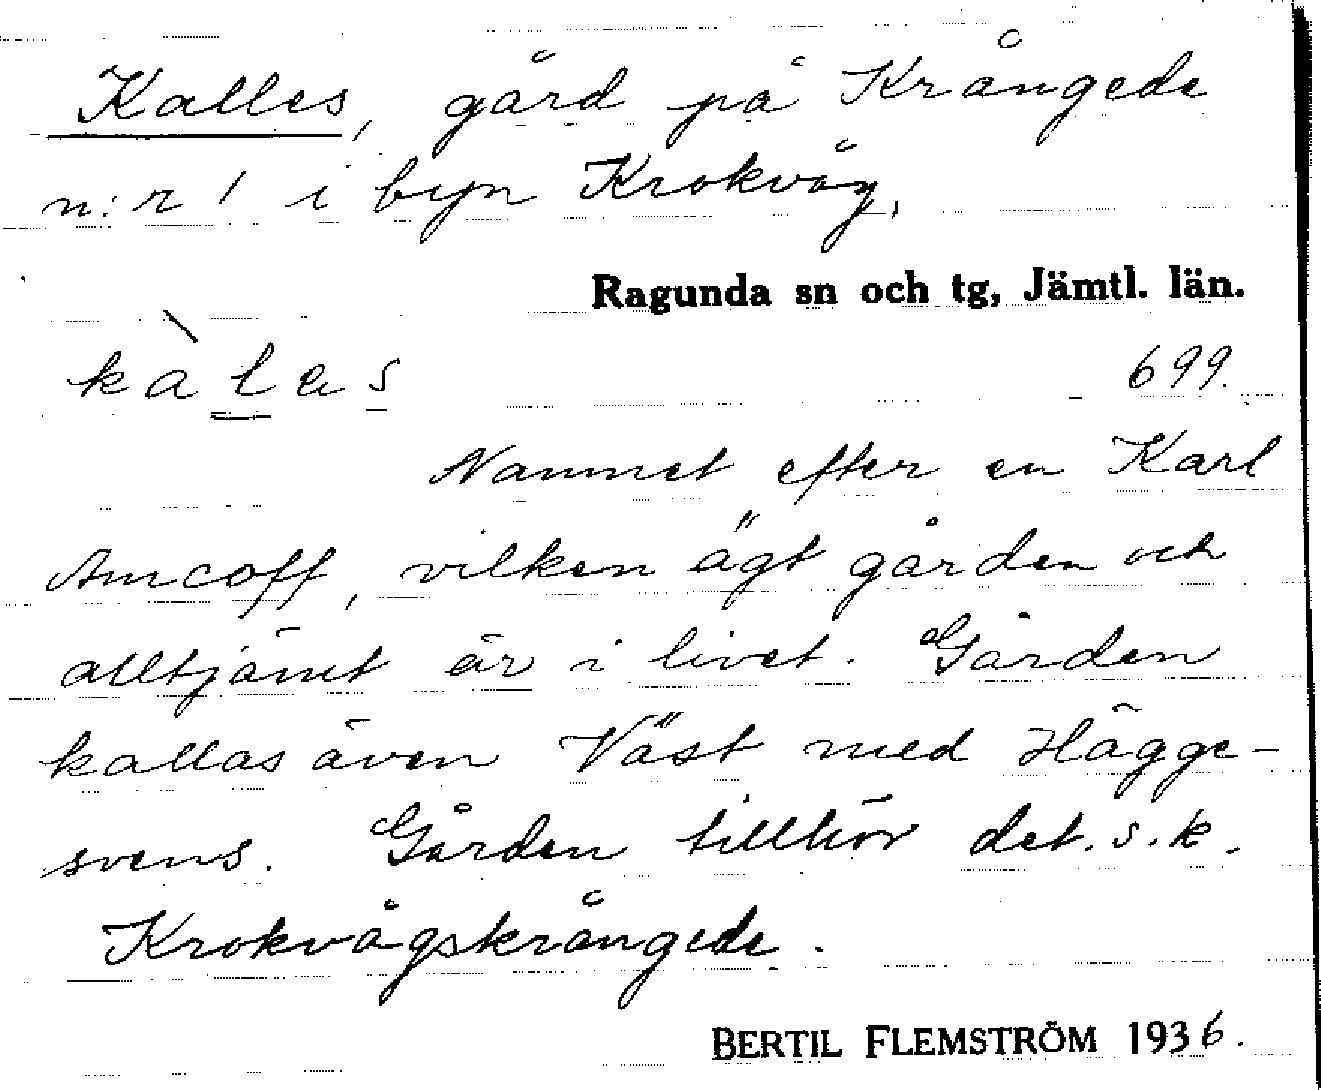 Kalles, gård på Krångede
n:r 1 i byn Krokvåg,
Ragunda sn och tg, Jämtl. län.
kàlas
699.
Namnet efter en Karl
Amcoff, vilken ägt gården och
alltjämt är i livet. Gården
kallas även Väst med Hägge-
svens. Gården tillhör det s.k.
Krokvågskrångede.
BERTIL FLEMSTRÖM 1936.